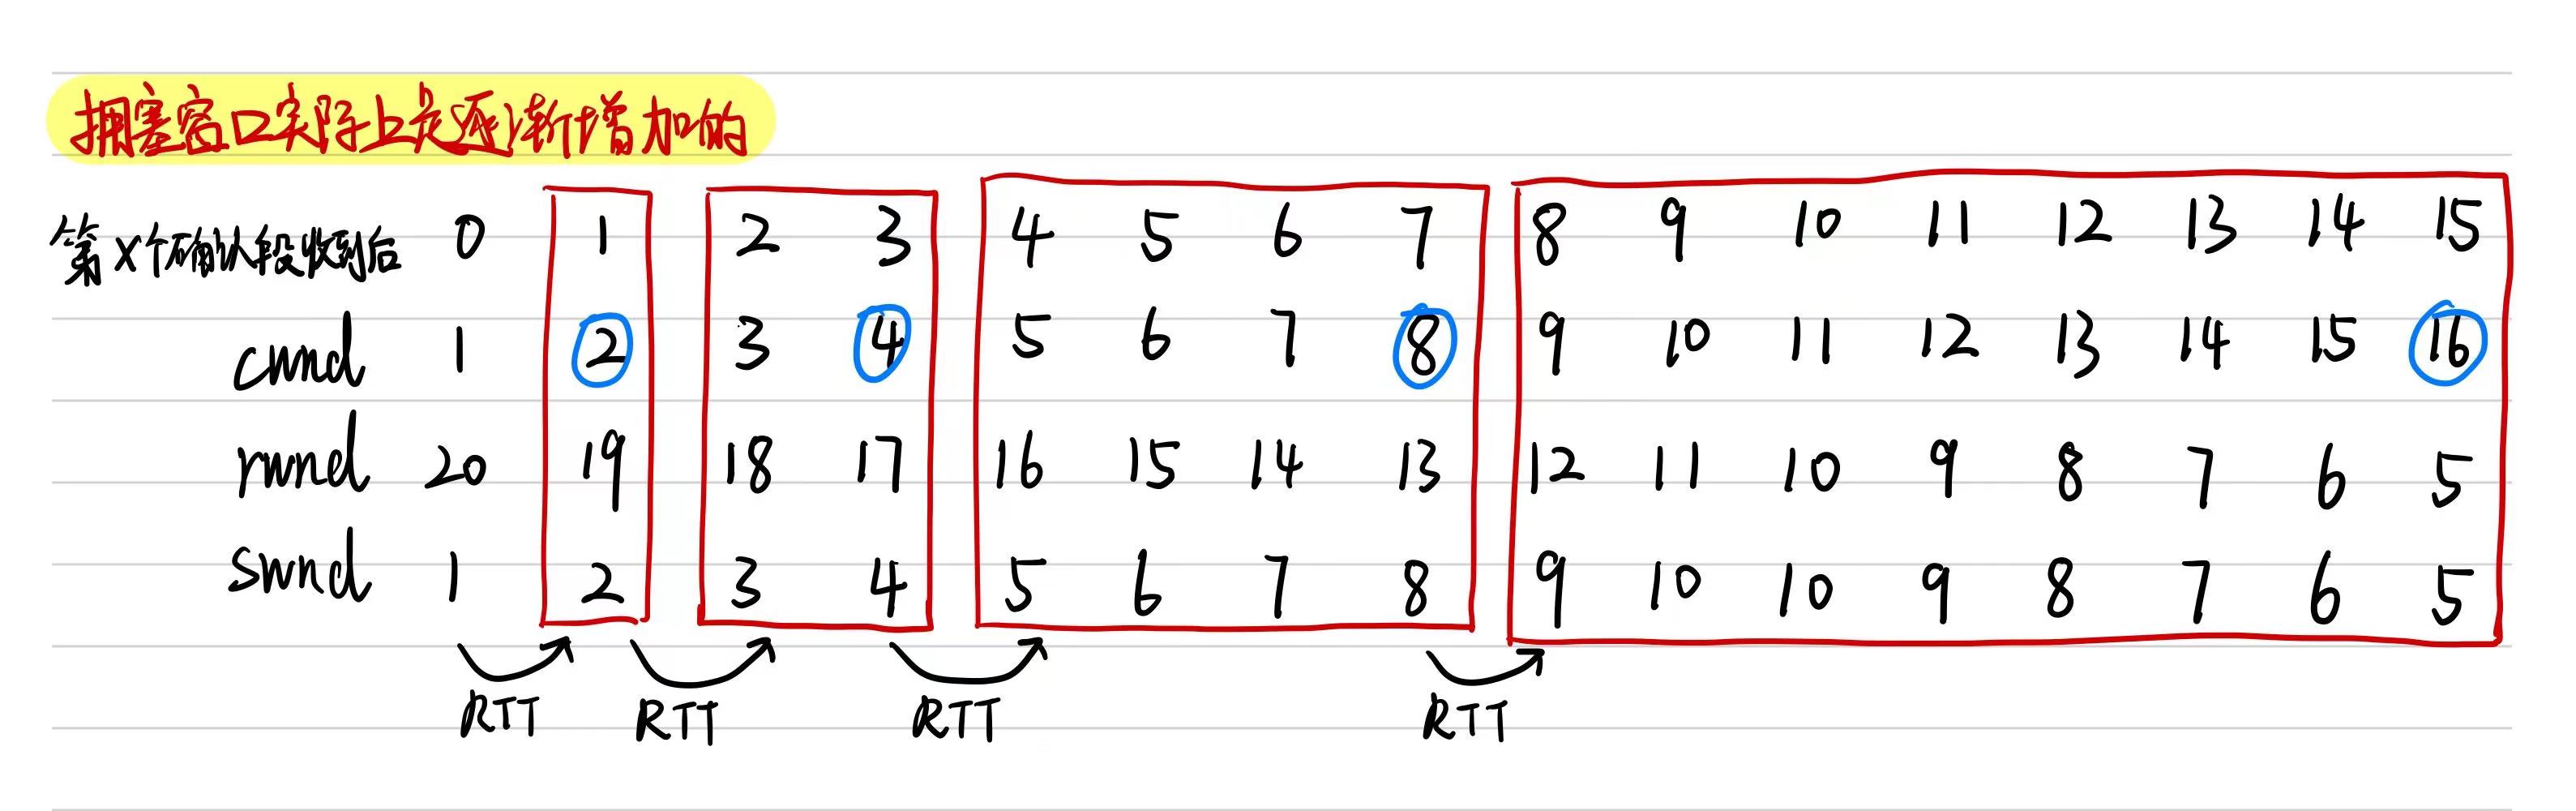 拥塞窗口实际上是逐渐增加的
第X个确认段收到后 0 1 2 3 4 5 6 7 8 9 10 11 12 13 14 15
cwnd 1 2 3 4 5 6 7 8 9 10 11 12 13 14 15 16
rwnd 20 19 18 17 16 15 14 13 12 11 10 9 8 7 6 5
swnd 1 2 3 4 5 6 7 8 9 10 10 9 8 7 6 5
RTT RTT RTT RTT